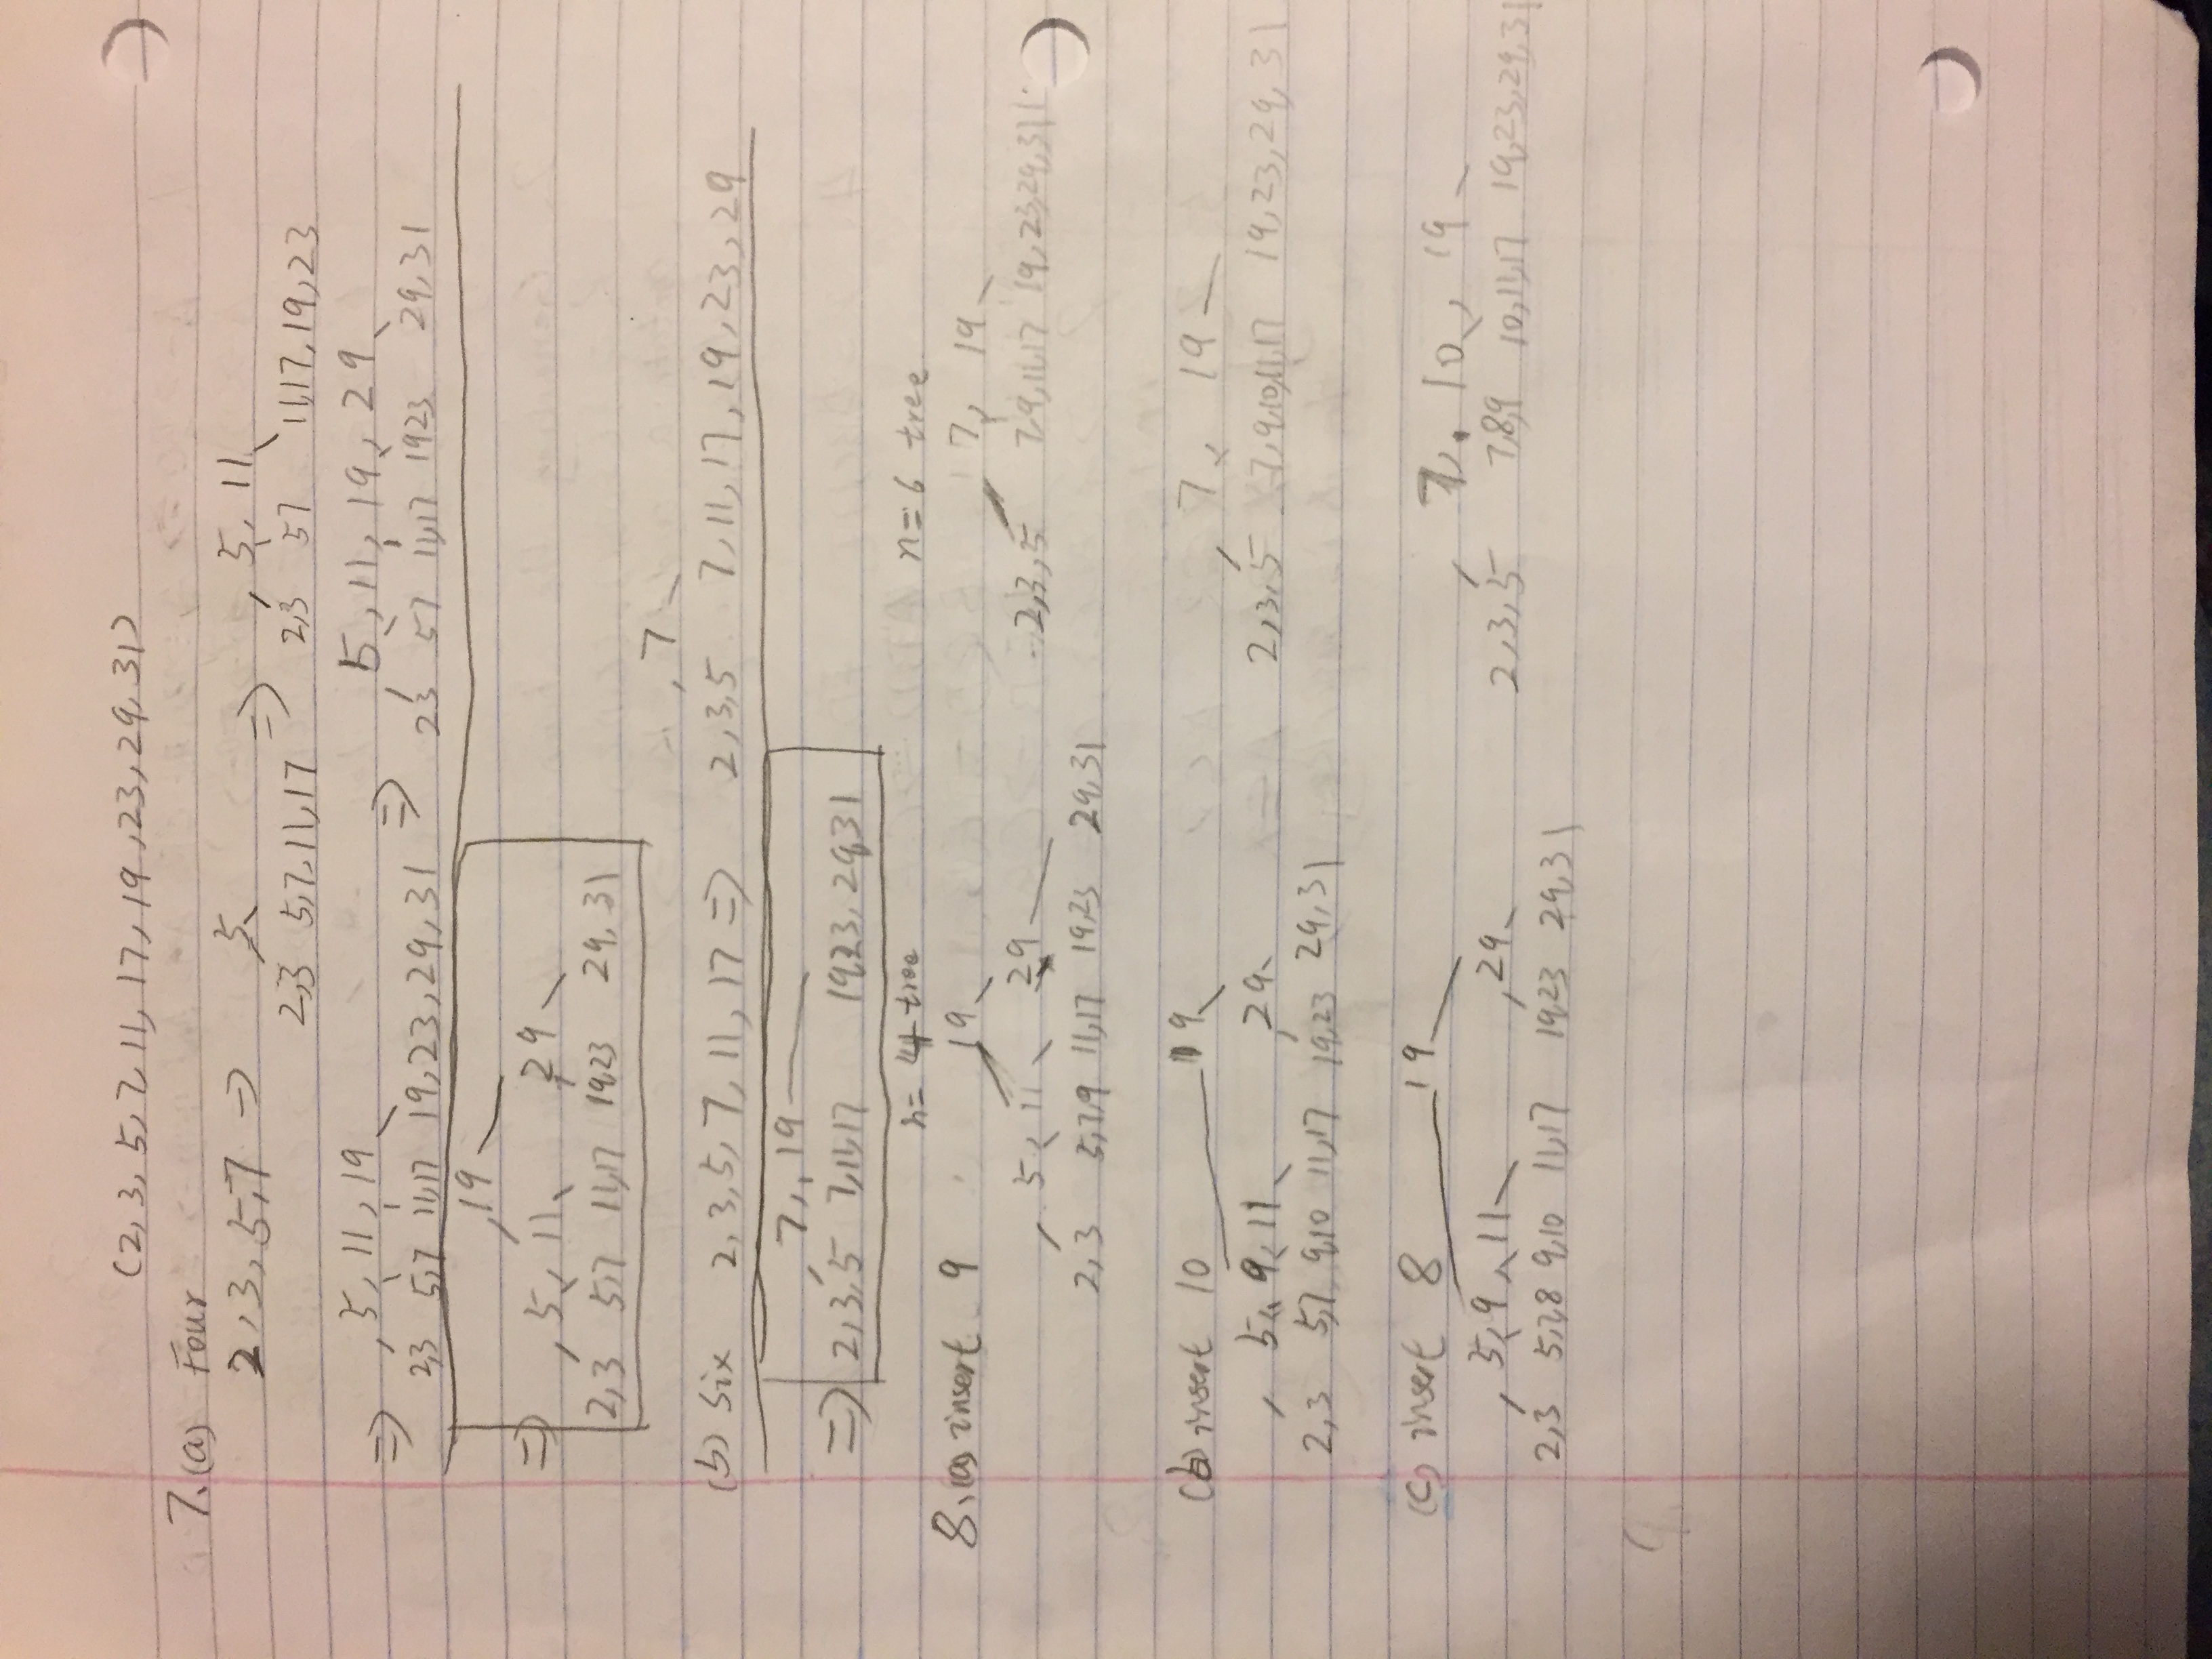 (2, 3, 5, 7, 11, 17, 19, 23, 29, 31)
7.(a) Four
5 5, 11
2, 3, 5, 7 => =>
2,3 5,7,11,17 2,3 57 11,17,19,23
5, 11, 19 5, 11, 19, 29
=> =>
2,3 5,7 11,17 19,23,29,31 23 57 11,17 1923 29,31
19
=> 5, 11 29
2,3 5,7 11,17 19,23 29,31
7
(b) Six 2,3,5,7,11,17 => 2,3,5 7,11,17,19,23,29
7, 19
=> 2,3,5 7,11,17 19,23,29,31
n= 4 tree n=6 tree
8.(a) insert 9 19 7, 19
5, 11 29 2,3,5 7,9,11,17 19,23,29,31
2,3 5,7,9 11,17 19,23 29,31
(b) insert 10 19 7, 19
5, 9, 11 29 2,3,5 7,9,10,11,17 19,23,29,31
2,3 5,7 9,10 11,17 19,23 29,31
(c) insert 8 19 7, 10, 19
5, 9, 11 29 2,3,5 7,8,9 10,11,17 19,23,29,31
2,3 5,7,8 9,10 11,17 19,23 29,31
9.